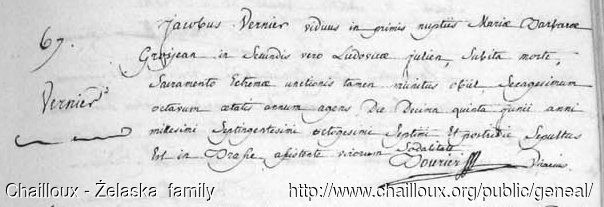 67.
Vernier
Jacobus Vernier viduus in primis nuptiis Mariæ Barbaræ
Grosjean in secundis vero Ludovicæ julien, Subita morte,
Sacramento Extremæ unctionis tamen munitus obiit, Sexagesimum
octavum ætatis annum agens, Die Decima quinta junii anni
millesimi Septingentesimi octogesimi Septimi Et postridie Sepultus
Est in assistente virorum Sodalitate
Vicarius
Chailloux - Żelaska family
http://www.chailloux.org/public/geneal/